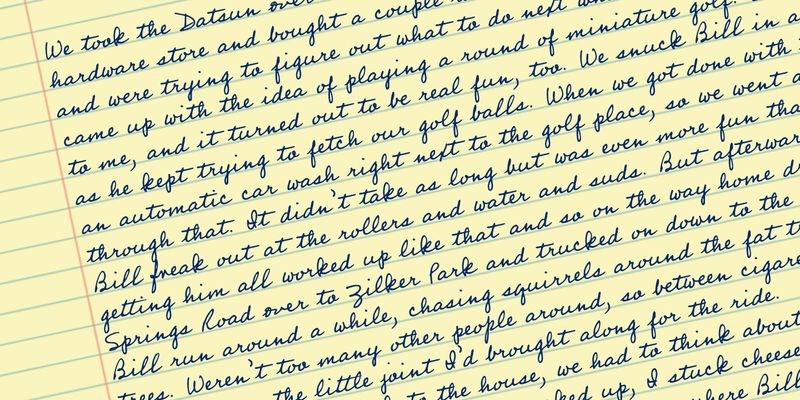 We took the Datsun over
hardware store and bought a couple
and were trying to figure out what to do next
came up with the idea of playing a round of miniature golf.
to me, and it turned out to be real fun, too. We snuck Bill in a
as he kept trying to fetch our golf balls. When we got done with
an automatic car wash right next to the golf place, so we went a
through that. It didn't take as long but was even more fun tha
Bill freak out at the rollers and water and suds. But afterwar
getting him all worked up like that and so on the way home d
Springs Road over to Zilker Park and trucked on down to the
Bill run around a while, chasing squirrels around the fat t
trees. Weren't too many other people around, so between cigare
the little joint I'd brought along for the ride.
to the house, we had to think about
ked up, I stuck cheese
here Bill